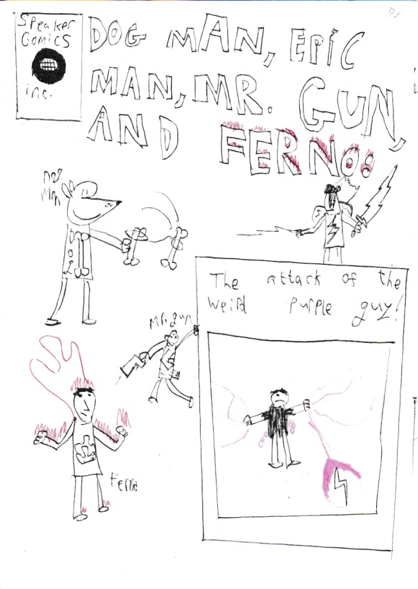 Speaker
Comics
inc.
DOG MAN, EPIC
MAN, MR. GUN,
AND FERNO!
Dog
Man
Mr. gun
The attack of the
weird purple guy!
Ferno